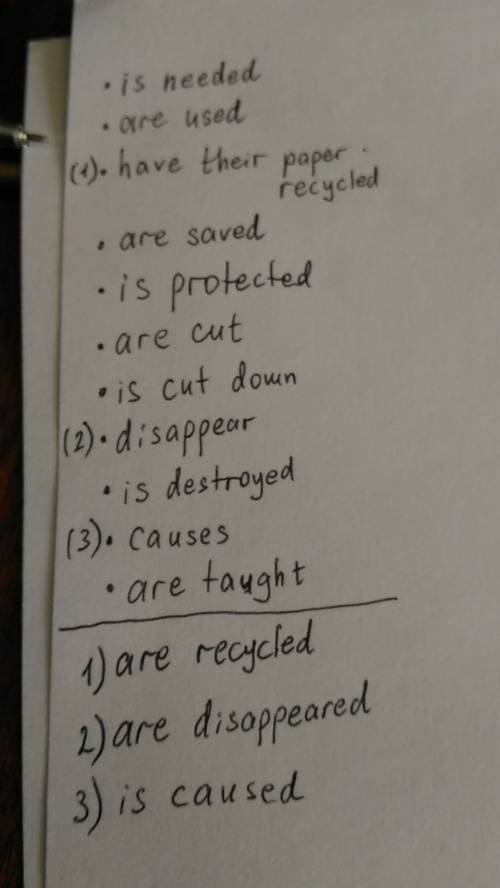 • is needed
• are used
(1)• have their paper
recycled
• are saved
• is protected
• are cut
• is cut down
(2)• disappear
• is destroyed
(3)• causes
• are taught
1) are recycled
2) are disappeared
3) is caused